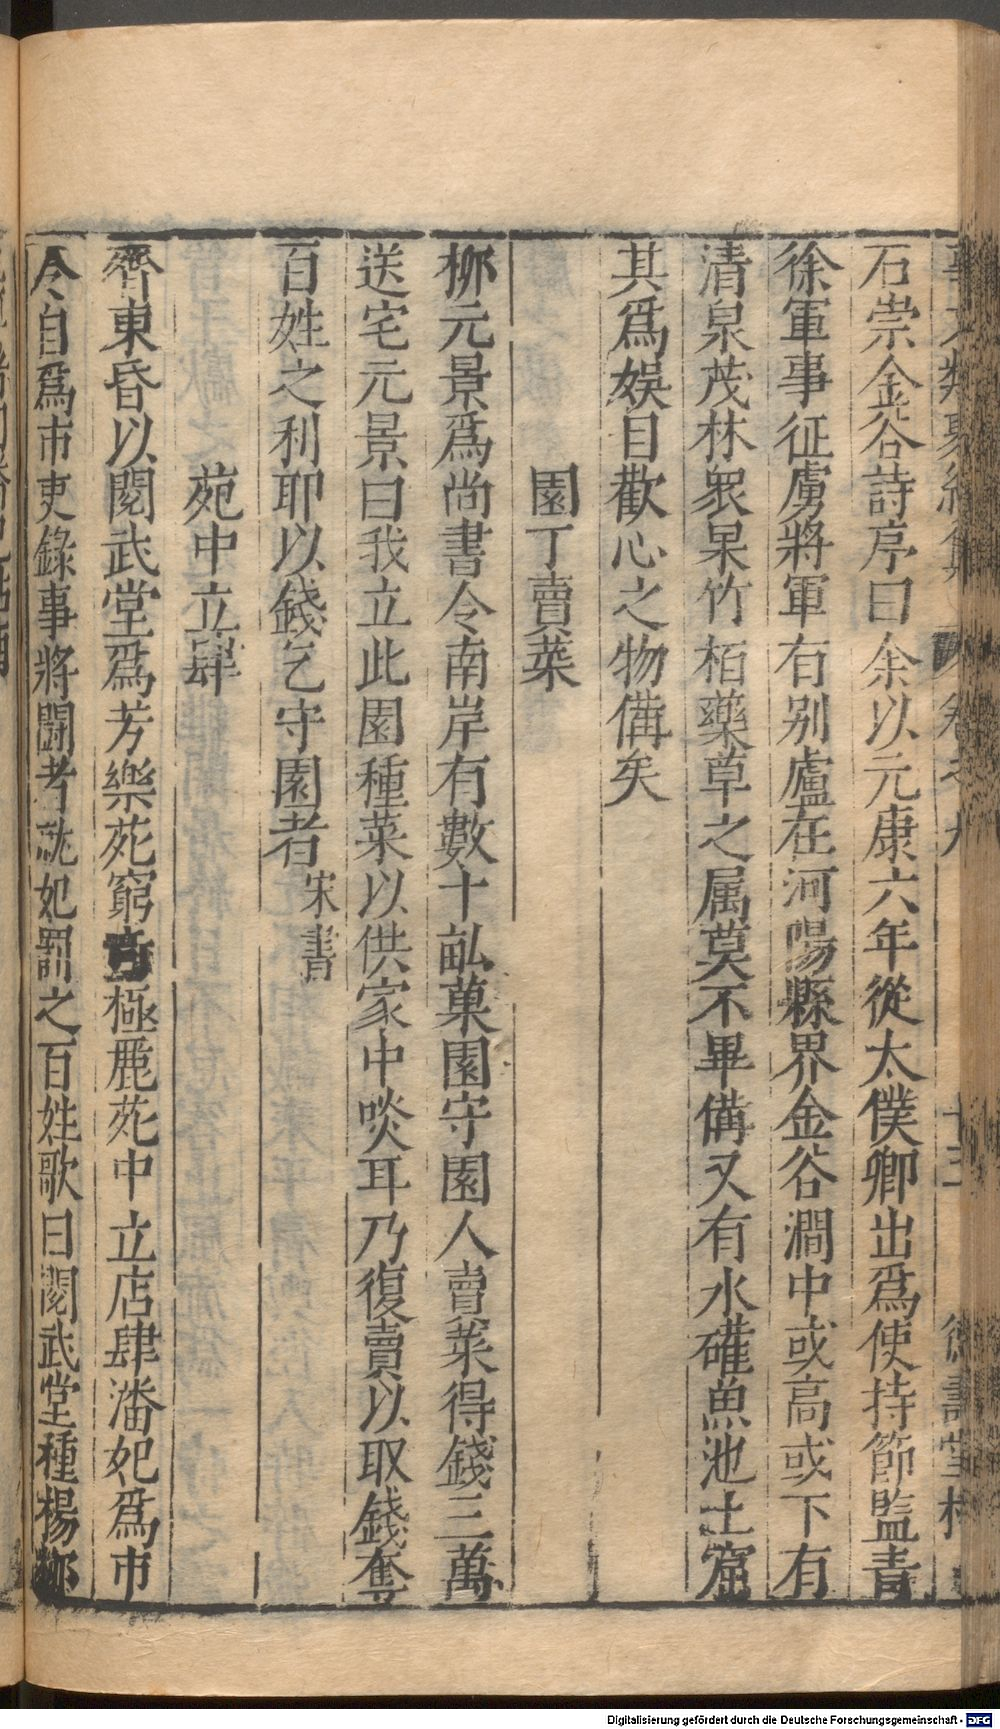 石崇金谷詩序曰余以元康六年從太僕卿出爲使持節監青
徐軍事征虜將軍有别廬在河陽縣界金谷澗中或高或下有
清泉茂林衆果竹栢藥草之属莫不畢備又有水碓魚池土窟
其爲娛目歡心之物備矣
園丁賣菜
柳元景爲尚書令南岸有數十畝菓園守園人賣菜得錢三萬
送宅元景曰我立此園種菜以供家中啖耳乃復賣以取錢奪
百姓之利耶以錢乞守園者宋書
苑中立肆
齊東昏以閱武堂爲芳樂苑窮竒極麗苑中立店肆潘妃爲市
令自爲市吏錄事將鬪者就妃罰之百姓歌曰閱武堂種楊柳
Digitalisierung gefördert durch die Deutsche Forschungsgemeinschaft - DFG